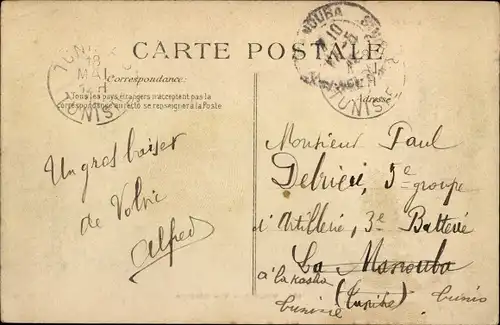 CARTE POSTALE
Correspondance:
Tous les pays étrangers n'acceptent pas la
correspondance au recto se renseigner à la Poste
Adresse
TUNIS
18
MAI
TUNISIE
TUNISIE
Un gros baiser
de Votre
Alfred
Monsieur Paul
5e groupe
d'Artillerie, 3e Batterie
La Manouba
à la
(Tunisie)